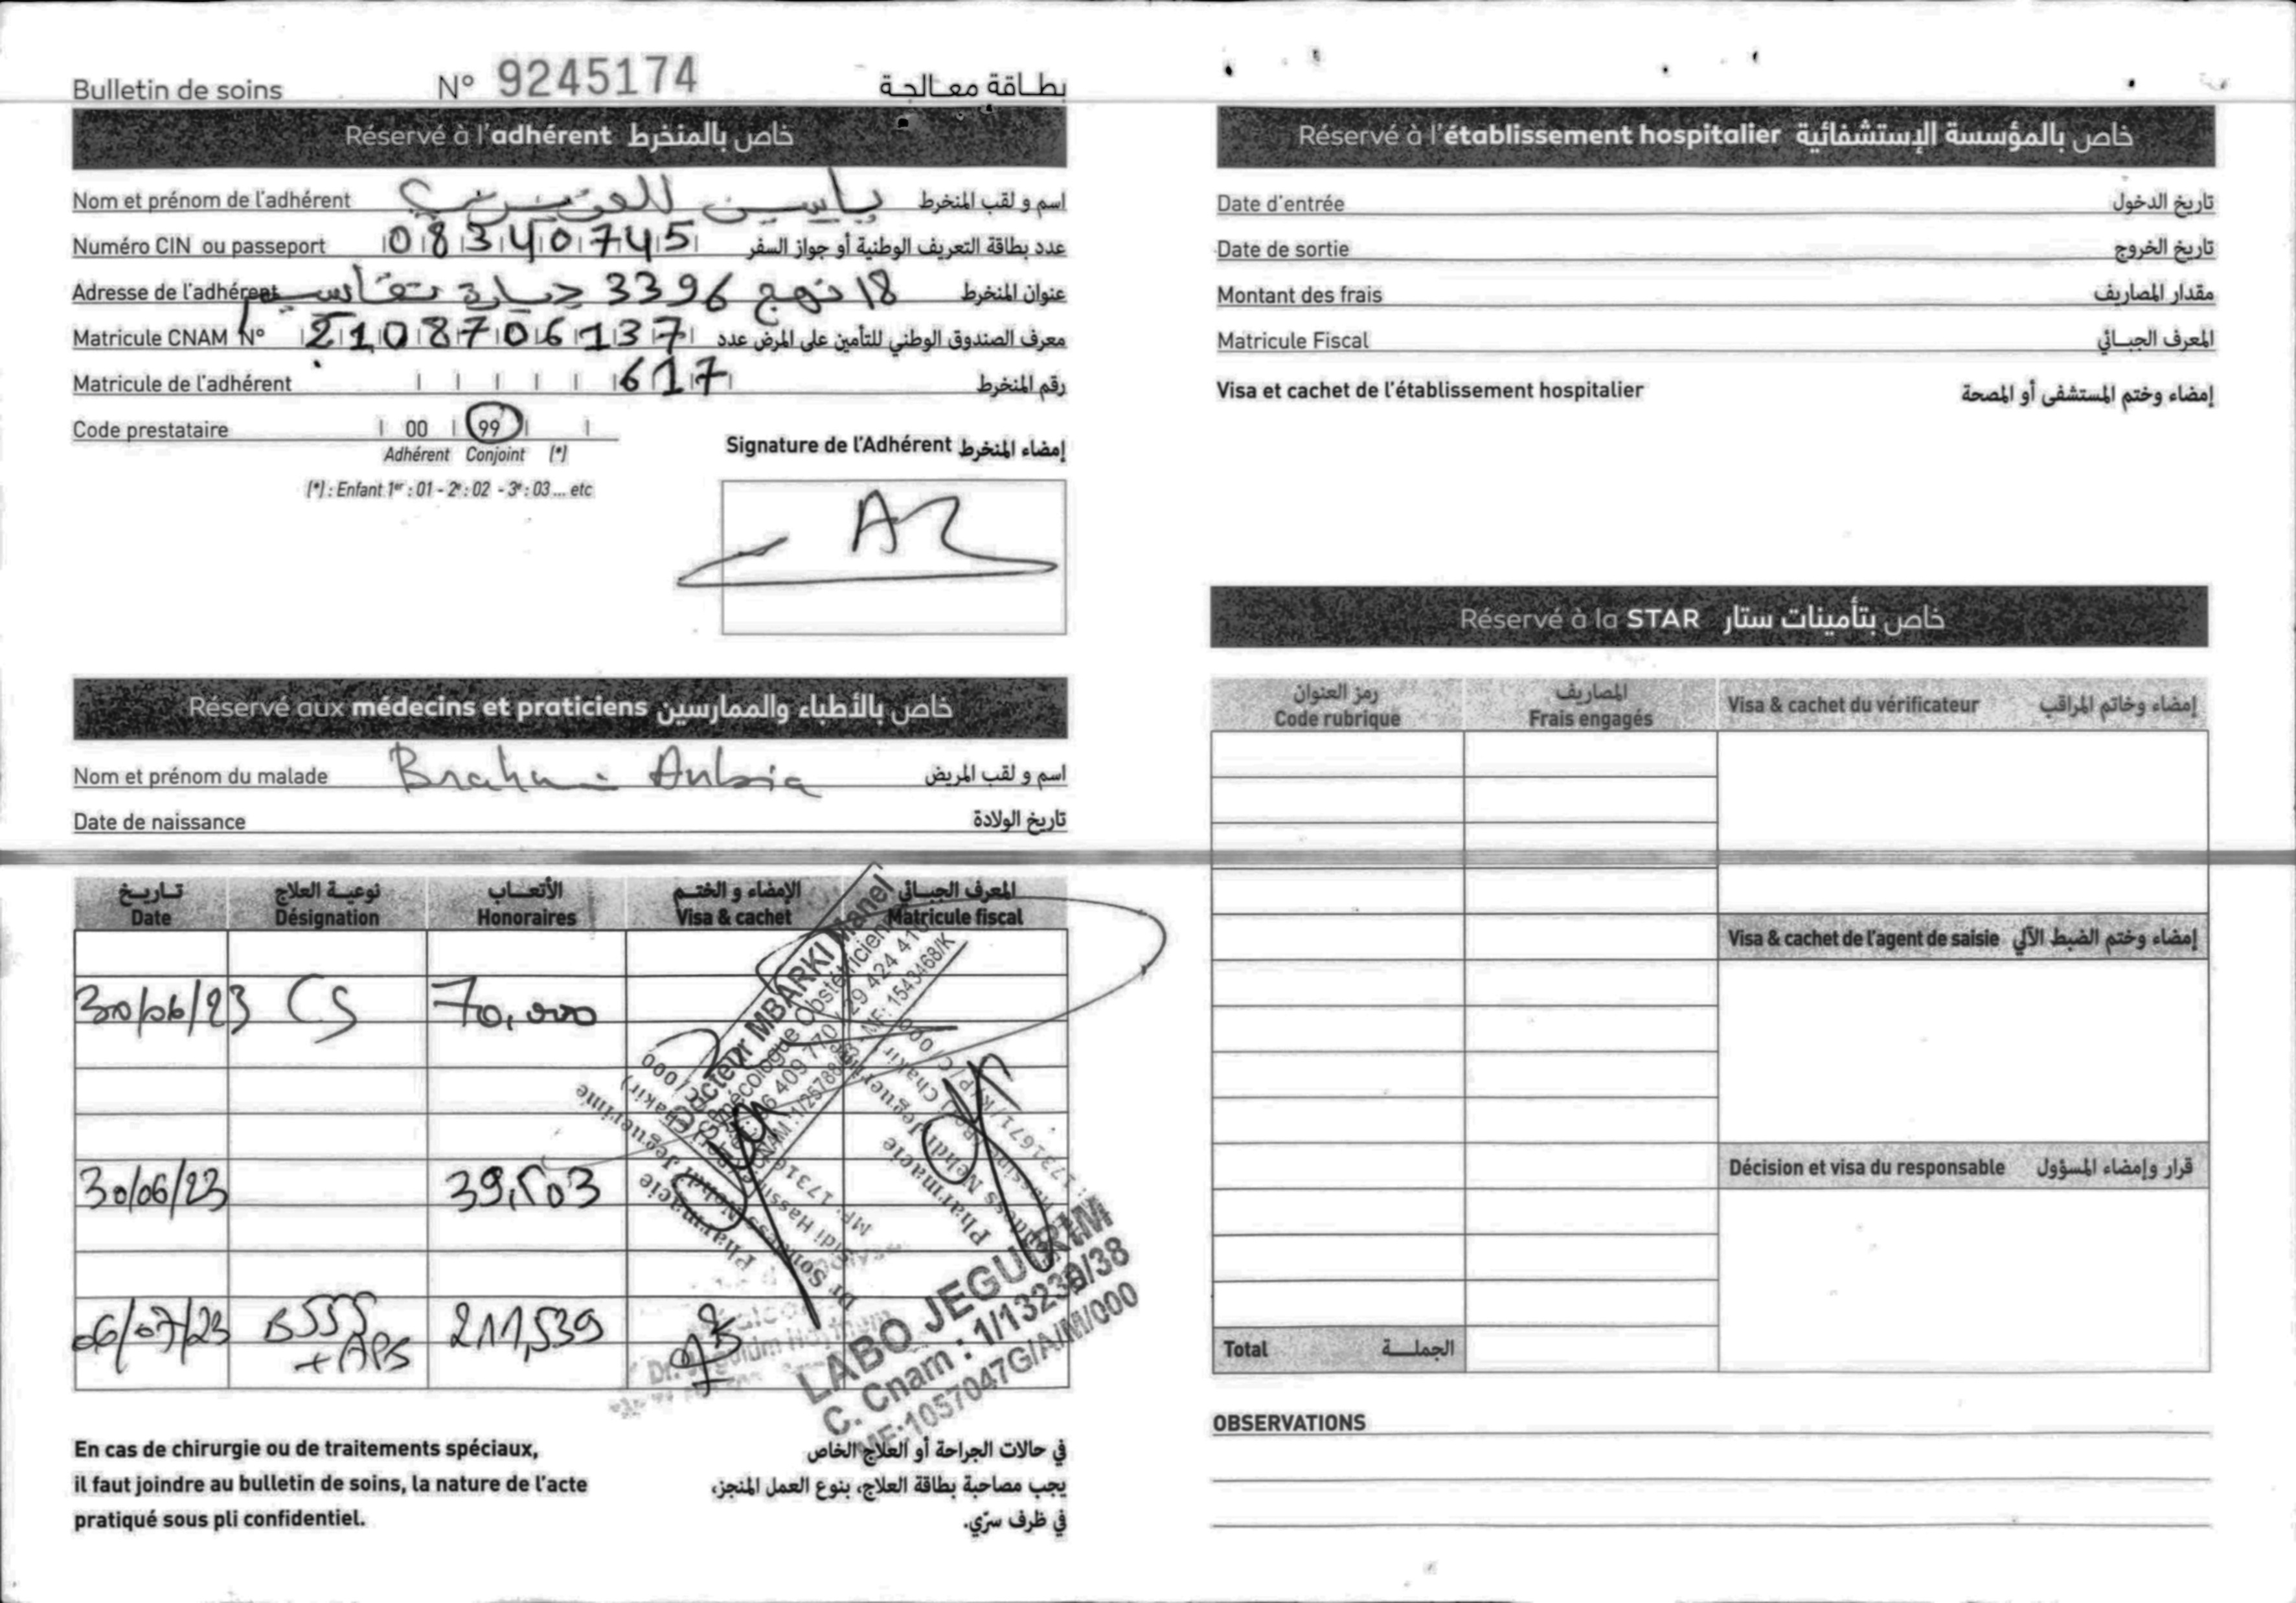 Bulletin de soins N° 9245174 بطاقة معالجة
Réservé à l'adhérent خاص بالمنخرط
Nom et prénom de l'adhérent ياسين اسم و لقب المنخرط
Numéro CIN ou passeport 08340745 عدد بطاقة التعريف الوطنية أو جواز السفر
Adresse de l'adhérent 18 نهج 3396 عنوان المنخرط
Matricule CNAM N° 2108706137 معرف الصندوق الوطني للتأمين على المرض عدد
Matricule de l'adhérent 617 رقم المنخرط
Code prestataire 00 99
Adhérent Conjoint (*)
(*) : Enfant 1er : 01 - 2e : 02 - 3e : 03 ... etc
Signature de l'Adhérent إمضاء المنخرط
Réservé aux médecins et praticiens خاص بالأطباء والممارسين
Nom et prénom du malade Brahmi اسم و لقب المريض
Date de naissance تاريخ الولادة
تاريخ نوعية العلاج الأتعاب الإمضاء و الختم المعرف الجبائي
Date Désignation Honoraires Visa & cachet Matricule fiscal
30/06/23 CS 70,000
30/06/23 39,503
06/07/23 B555 + APB 211,539
Docteur MBARKI Manel
Gynécologue Obstétricienne
29 424 410
MF: 1543468/K
Pharmacie
LABO JEGUIRIM
C. Cnam : 1/13238/38
MF:1057047G/A/M/000
En cas de chirurgie ou de traitements spéciaux,
il faut joindre au bulletin de soins, la nature de l'acte
pratiqué sous pli confidentiel.
في حالات الجراحة أو العلاج الخاص
يجب مصاحبة بطاقة العلاج، بنوع العمل المنجز،
في ظرف سرّي.
Réservé à l'établissement hospitalier خاص بالمؤسسة الإستشفائية
Date d'entrée تاريخ الدخول
Date de sortie تاريخ الخروج
Montant des frais مقدار المصاريف
Matricule Fiscal المعرف الجبائي
Visa et cachet de l'établissement hospitalier إمضاء وختم المستشفى أو المصحة
Réservé à la STAR خاص بتأمينات ستار
رمز العنوان المصاريف
Code rubrique Frais engagés Visa & cachet du vérificateur إمضاء وخاتم المراقب
Visa & cachet de l'agent de saisie إمضاء وختم الضبط الآلي
Décision et visa du responsable قرار وإمضاء المسؤول
Total الجملة
OBSERVATIONS